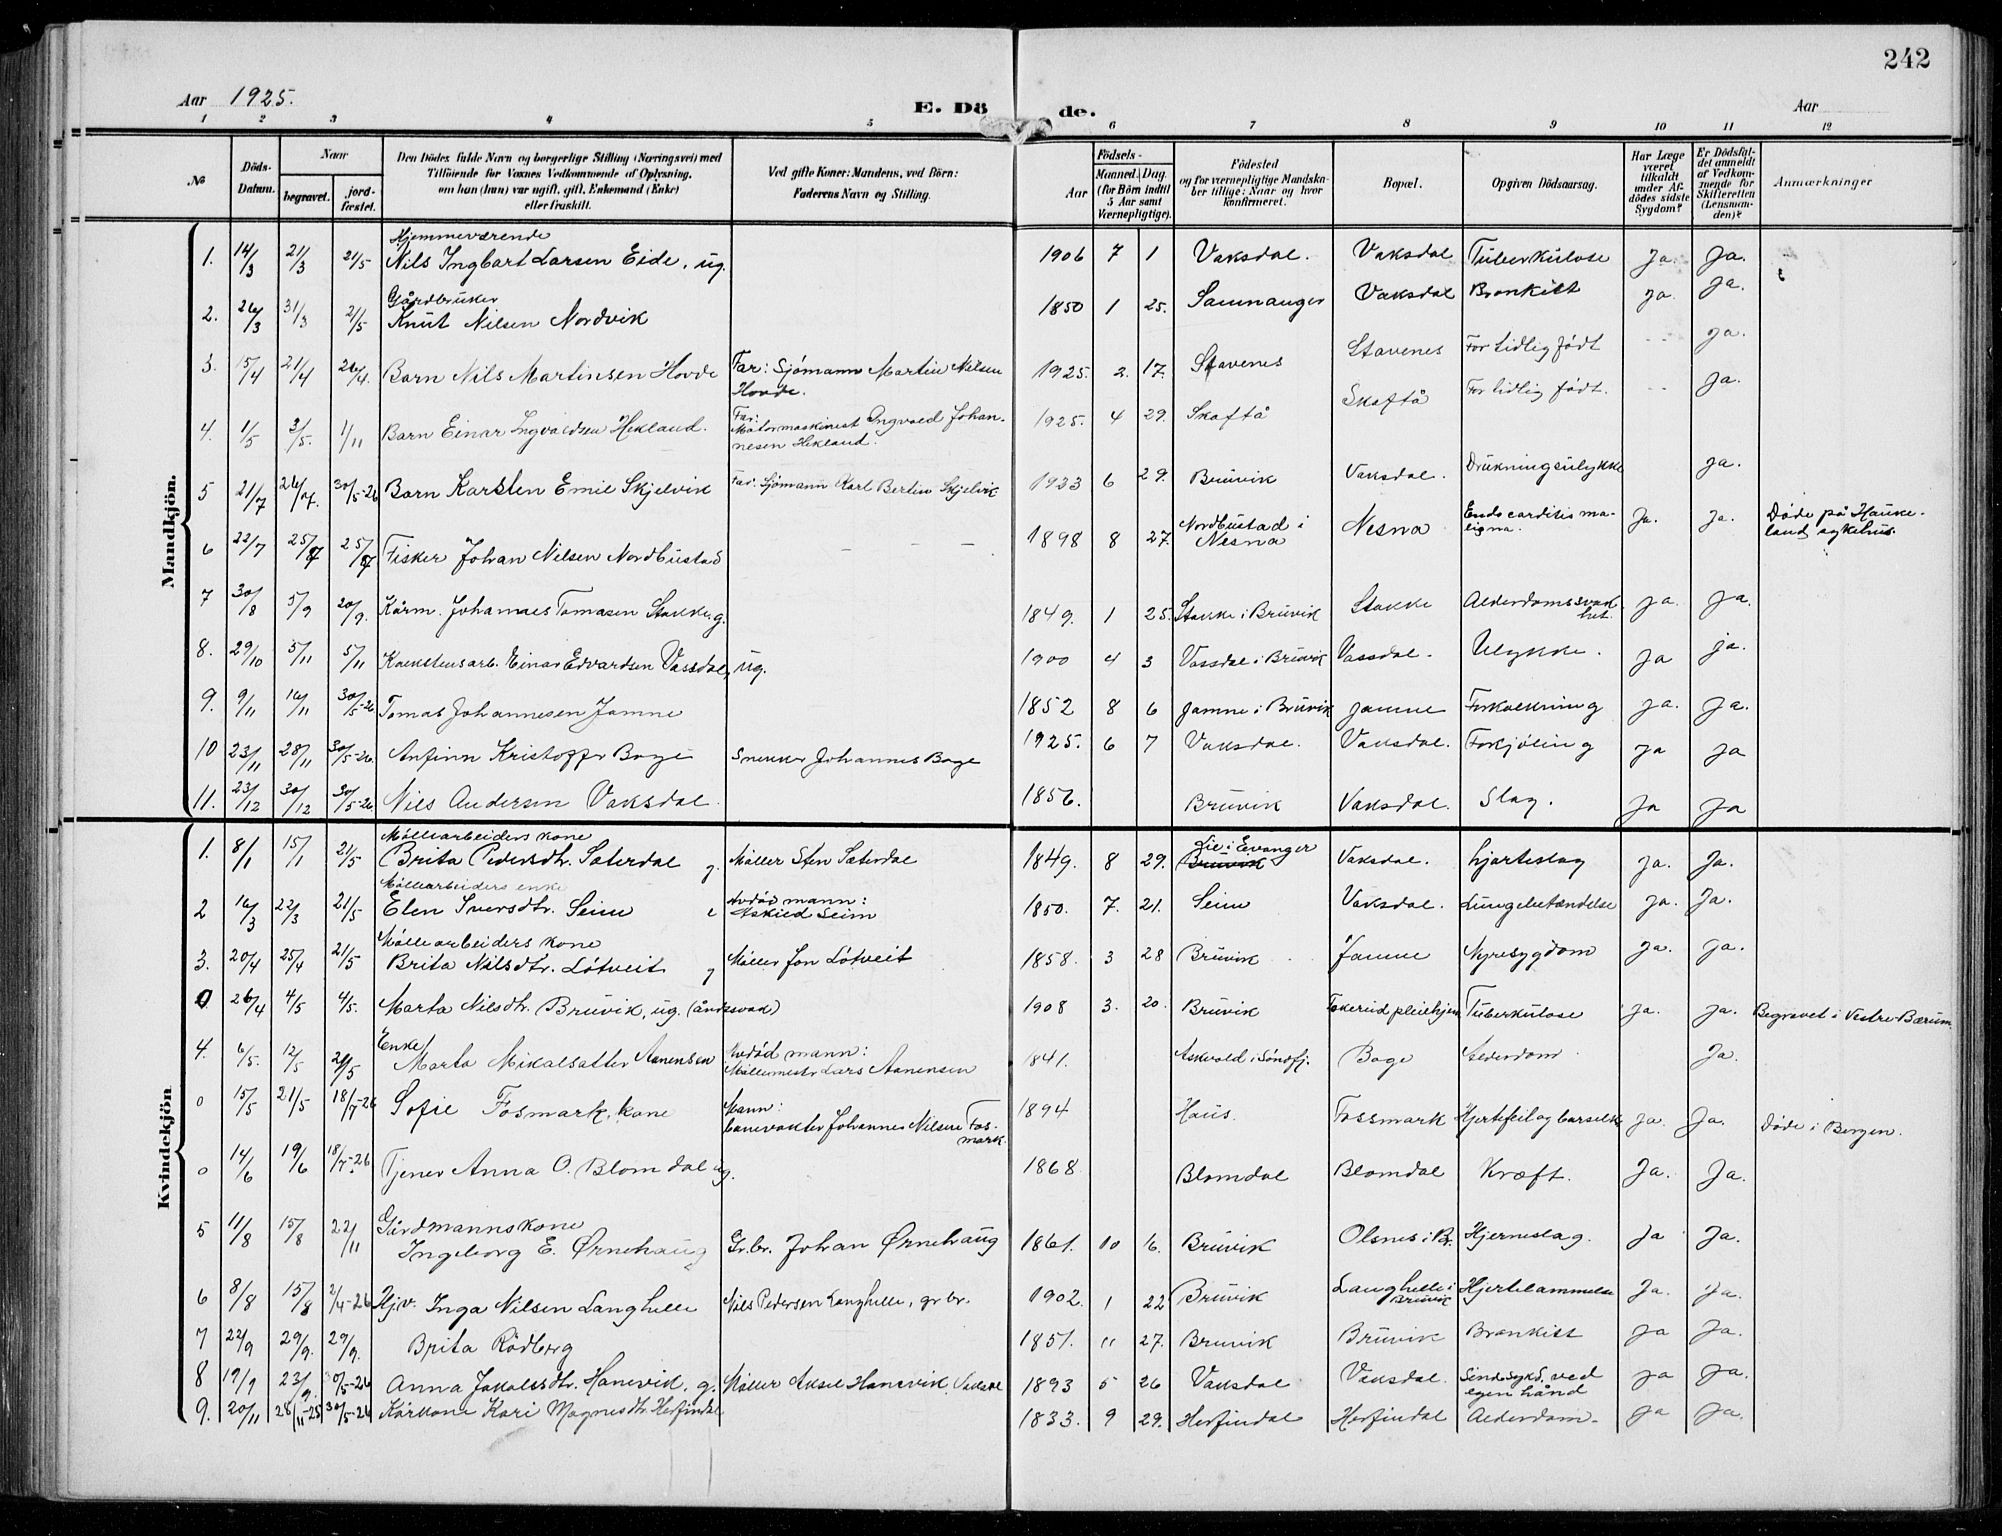 242
Aar 1925.
E. Dö de.
Aar
1 2 3 4 5 6 7 8 9 10 11 12
№
Döds-Datum.
Naar
begravet.
jord-fæstet.
Den Dödes fulde Navn og borgerlige Stilling (Næringsvei) med
Tilföiende for Voxnes Vedkommende af Oplysning,
om han (hun) var ugift, gift, Enkemand (Enke)
eller fraskilt.
Ved gifte Koner: Mandens, ved Börn:
Faderens Navn og Stilling.
Födsels-
Aar
Maaned. Dag.
(for Börn indtil
5 Aar samt
Værnepligtige).
Födested
og for værnepligtige Mandska-
ber tillige: Naar og hvor
konfirmeret.
Bopæl.
Opgiven Dödsaarsag.
Har Læge
været
tilkaldt
under Af-
dödes sidste
Sygdom?
Er Dödsfal-
det anmeldt
af Vedkom-
mende for
Skifteretten
(Lensman-
den)?
Anmærkninger
Mandkjön.
Hjemmeværende
1. 14/3 21/3 21/5 Nils Ingbart Larsen Eide, ug. 1906 7 1 Vaksdal. Vaksdal Tuberkulose Ja. Ja.
Gårdbruker
2. 26/3 31/3 2/5 Knut Nilsen Nordvik 1850 1 25. Samnanger Vaksdal Bronkitt Ja. Ja.
3. 15/4 21/4 26/4. Barn Nils Martinsen Hovde Far: Sjömann Martin Nilsen Hovde. 1925. 2. 17. Stavenes Stavenes For tidlig födt -- Ja.
4. 1/5 3/5. 1/11 Barn Einar Ingvaldsen Hekland. Far: Motormaskinist Ingvald Johannesen Hekland. 1925. 4 29. Skaftå Skaftå For tidlig födt. -- Ja.
5 21/7 26/7. 30/5-26 Barn Karsten Emil Skjelvik Far: Sjömann Karl Bertin Skjelvik 1923 6 29. Bruvik Vaksdal. Drukningsulykke Ja.
6 22/7 25/7 25/7 Fisker Johan Nilsen Nordbustad - - - 1898 8 27. Nordbustad i Nesna Nesna Endocarditis maligna. Ja. Ja. Döde på Haukeland sykehus.
7 30/8 5/9 20/9. Kårm. Johannes Tomasen Stakke. g. 1849. 1 25. Stakke i Bruvik Stakke Alderdomssvakhet. Ja. Ja.
8. 29/10 5/11 5/11 Einar Edvardsen Vassdal, ug. 1900 4 3 Vassdal i Bruvik Vassdal. Ulykke. Ja Ja.
9. 9/11 16/11 30/5-26 Tomas Johannesen Jamne 1852 8 6 Jamne i Bruvik Jamne Forkalkning Ja. Ja.
10 23/11 28/11 30/5-26. Anfinn Kristoffer Boge Snekker Johannes Boge 1925. 6 7 Vaksdal. Vaksdal. Forkjöling Ja Ja
11. 23/12 30/12 30/5-26 Nils Andersen Vaksdal. 1856. Bruvik Vaksdal. Slag. Ja Ja
Kvindekjön
Möllearbeiders kone
1. 8/1 15/1 21/5 Brita Pedersdtr. Sæterdal g. Möller Sten Sæterdal 1849. 8 29. Lie i Evanger Bruvik Vaksdal. Hjarteslag Ja. Ja.
Möllearbeiders enke
2 16/3 22/3 21/5 Elen Iversdtr. Seim e Avdöd mann: Askild Seim 1850. 7. 21. Seim Vaksdal. Lungebetændelse Ja. Ja.
Möllearbeiders kone
3. 20/4 25/4 21/5 Brita Nilsdtr. Lötveit g Möller Jon Lötveit 1858. 3 28 Bruvik Jamne Nyresygdom Ja. Ja.
0 26/4 4/5 4/5. Marta Nilsdtr. Bruvik, ug. (åndssvak) 1908 3. 20. Bruvik pleiehjem Tuberkulose Ja. Ja. Begravet i Vestre Bærum
Enke
4. 6/5. 12/5 21/5 Marta Mikalsatter Aanensen Avdöd mann: Möllemester Lars Aanensen 1841. Askvold i Söndfj. Boge Alderdom Ja.
0 15/5 21/5 18/7-26 Sofie Fosmark, kone Mann: banevokter Johannes Nilsen Fosmark. 1894 Haus. Fossmark Hjertefeil og barselsk. Ja. Ja. Döde i Bergen.
0 14/6 19/6 18/7-26 Tjener Anna O. Blomdal ug. 1868 Blomdal Blomdal Kræft. Ja. Ja.
Gårdmannskone
5 11/8 15/8 22/11 Ingeborg E. Ørnehaug Gr.br. Johan Ørnehaug 1861. 10 16. Bruvik Olsnes i Br. Hjerneslag. Ja Ja.
6 8/8 15/8 2/4-26 Hjv. Inga Nilsen Langhelle Nils Pedersen Langhelle, gr.br. 1902. 1 22 Bruvik Langhelle i Bruvik Hjertelammelse Ja. Ja.
7 22/9 29/9. 29/9. Brita Rödberg 1851. 11 27. Bruvik Bruvik Bronkitt Ja Ja.
8 19/9 23/9. 30/5-26 Anna Jakobsdtr. Hanevik, g. Möller Aksel Hanevik, Vaksdal 1893 5 26 Vaksdal Vaksdal. Sindssygd. ved egen hånd Ja Ja.
9. 20/11 28/11-25 30/5-26 Kårkone Kari Magnesdtr. Herfindal 1833. 9 29. Herfindal Herfindal Alderdom. Ja Ja.